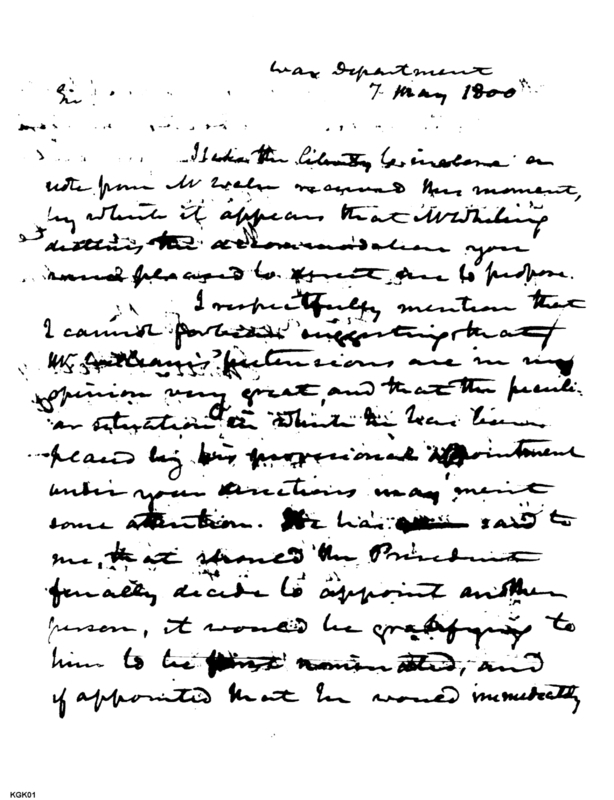 War Department
7 May 1800
Sir
I take the liberty to inclose a
note from Mr received this moment,
by which it appears that Mr Whiting
declines the accommodation you
pleased to me to propose.
I respectfully mention that
I cannot forbear suggesting that
Mr Williams' pretensions are in my
opinion very great, and that the peculi-
ar situation in which he has been
placed by his provisional appointment
under your directions may merit
some attention. He has said to
me, that should the President
finally decide to appoint another
person, it would be gratifying to
him to be first nominated, and
if appointed that he would immediately
KGK01